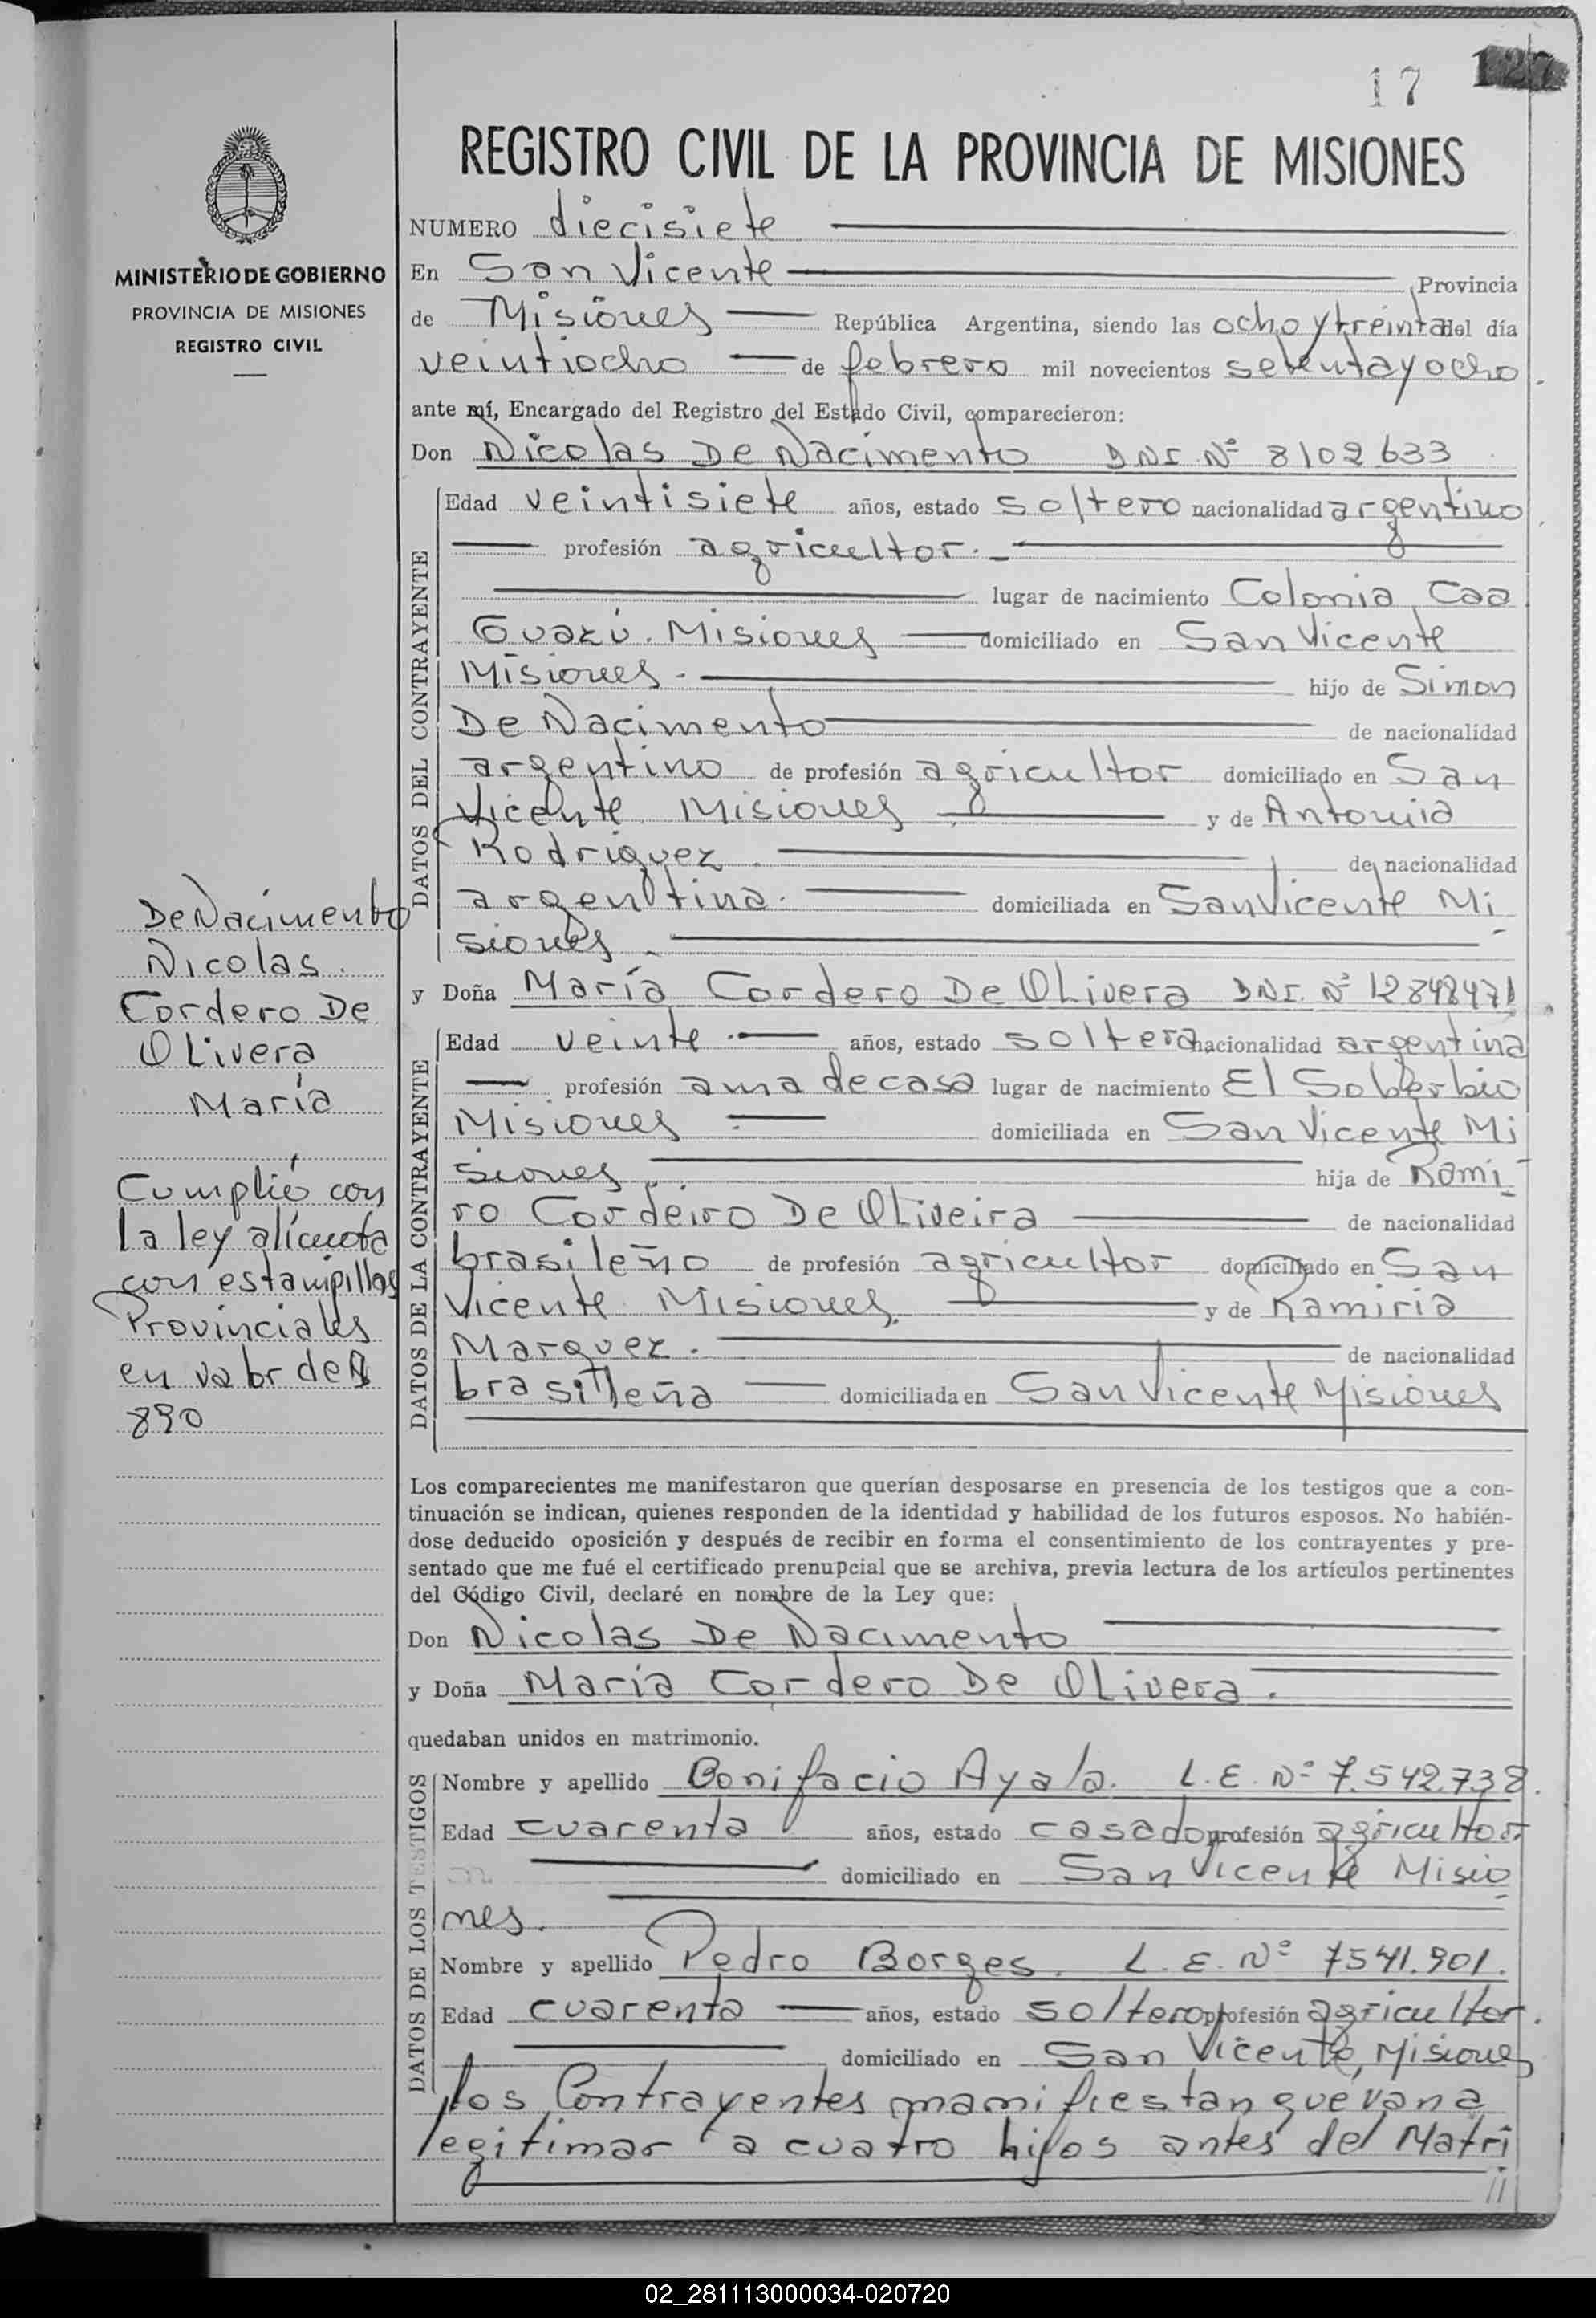 17 127
REGISTRO CIVIL DE LA PROVINCIA DE MISIONES
MINISTERIO DE GOBIERNO
PROVINCIA DE MISIONES
REGISTRO CIVIL
NUMERO diecisiete
En San Vicente Provincia
de Misiones República Argentina, siendo las ocho y treinta del día
veintiocho de febrero mil novecientos setenta y ocho
ante mí, Encargado del Registro del Estado Civil, comparecieron:
Don Nicolas De Nacimento DNI. Nº 8102633
DATOS DEL CONTRAYENTE
Edad veintisiete años, estado soltero nacionalidad argentino
profesión agricultor.
lugar de nacimiento Colonia Caa
Guazú. Misiones domiciliado en San Vicente
Misiones. hijo de Simon
De Nacimento de nacionalidad
argentino de profesión agricultor domiciliado en San
Vicente Misiones y de Antonia
Rodriguez. de nacionalidad
argentina. domiciliada en San Vicente Mi
siones.
y Doña María Cordero De Olivera DNI. Nº 12848471
DATOS DE LA CONTRAYENTE
Edad veinte años, estado soltera nacionalidad argentina
profesión ama de casa lugar de nacimiento El Soberbio
Misiones domiciliada en San Vicente Mi
siones hija de Rami
ro Cordeiro De Oliveira de nacionalidad
brasileño de profesión agricultor domiciliado en San
Vicente Misiones. y de Ramiria
Marquez. de nacionalidad
brasileña domiciliada en San Vicente Misiones
De Nacimento
Nicolas.
Cordero De
Olivera
María
Cumplió con
la ley alícuota
con estampillas
Provinciales
en valor de $
890
Los comparecientes me manifestaron que querían desposarse en presencia de los testigos que a con-
tinuación se indican, quienes responden de la identidad y habilidad de los futuros esposos. No habién-
dose deducido oposición y después de recibir en forma el consentimiento de los contrayentes y pre-
sentado que me fué el certificado prenupcial que se archiva, previa lectura de los artículos pertinentes
del Código Civil, declaré en nombre de la Ley que:
Don Nicolas De Nacimento
y Doña María Cordero De Olivera.
quedaban unidos en matrimonio.
DATOS DE LOS TESTIGOS
Nombre y apellido Bonifacio Ayala. L.E. Nº 7.542.738.
Edad cuarenta años, estado casado profesión agricultor
domiciliado en San Vicente Misio
nes.
Nombre y apellido Pedro Borges. L.E. Nº 7541.901.
Edad cuarenta años, estado soltero profesión agricultor.
domiciliado en San Vicente, Misiones
los Contrayentes manifiestan que van a
legitimar a cuatro hijos antes del Matri
//
02_281113000034-020720